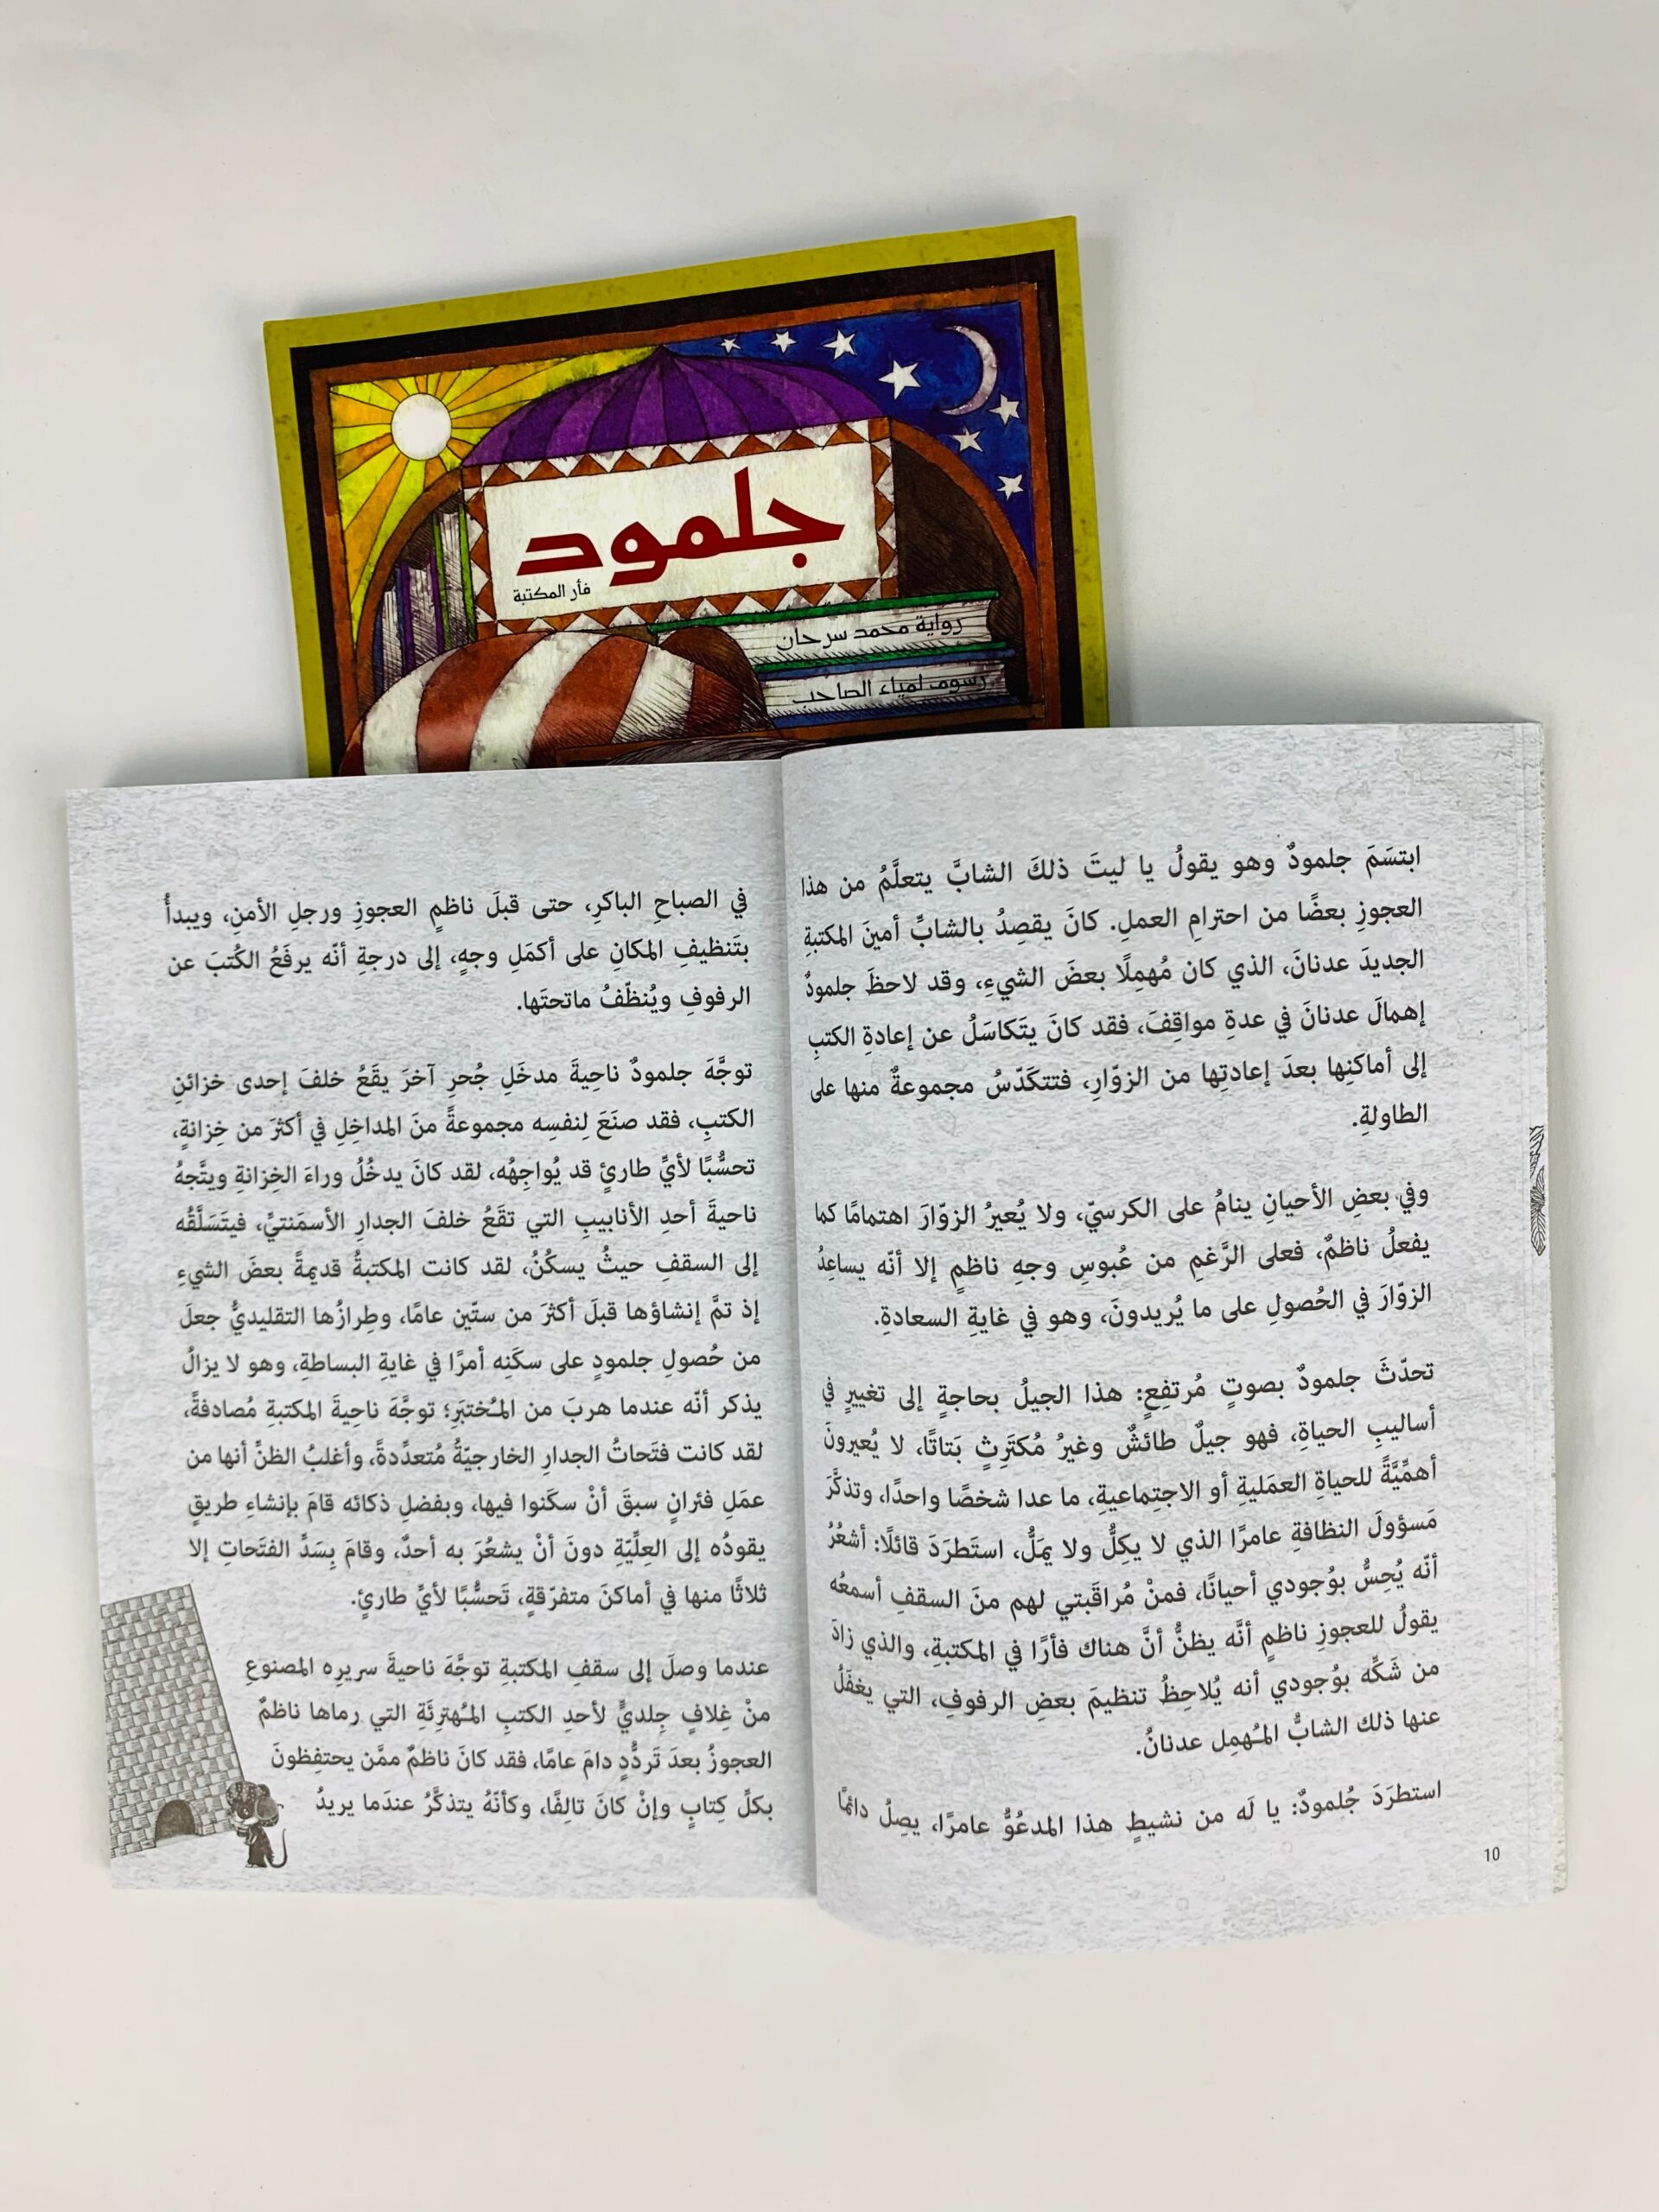 جلمود
فأر المكتبة
رواية محمد سرحان
رسوم لمياء الصاحب
ابتسَمَ جلمودٌ وهو يقولُ يا ليتَ ذلكَ الشابَّ يتعلَّمُ من هذا
العجوزِ بعضًا من احترامِ العملِ. كانَ يقصِدُ بالشابِّ أمينَ المكتبةِ
الجديدَ عدنانَ، الذي كان مُهمِلًا بعضَ الشيءِ، وقد لاحظَ جلمودٌ
إهمالَ عدنانَ في عدةِ مواقِفَ، فقد كانَ يتَكاسَلُ عن إعادةِ الكتبِ
إلى أماكنِها بعدَ إعادتِها من الزوّارِ، فتتكَدّسُ مجموعةٌ منها على
الطاولةِ.
وفي بعضِ الأحيانِ ينامُ على الكرسيّ، ولا يُعيرُ الزوّارَ اهتمامًا كما
يفعلُ ناظمٌ، فعلى الرَّغمِ من عُبوسِ وجهِ ناظمٍ إلا أنّه يساعِدُ
الزوّارَ في الحُصولِ على ما يُريدونَ، وهو في غايةِ السعادةِ.
تحدّثَ جلمودٌ بصوتٍ مُرتفِعٍ: هذا الجيلُ بحاجةٍ إلى تغييرٍ في
أساليبِ الحياةِ، فهو جيلٌ طائشٌ وغيرُ مُكتَرِثٍ بَتاتًا، لا يُعيرونَ
أهمِّيَّةً للحياةِ العمَليةِ أو الاجتِماعيةِ، ما عدا شخصًا واحدًا، وتذكَّرَ
مَسؤولَ النظافةِ عامرًا الذي لا يكِلُّ ولا يمَلُّ، استَطرَدَ قائلًا: أشعُرُ
أنّه يُحِسُّ بوُجودي أحيانًا، فمنْ مُراقَبتي لهم منَ السقفِ أسمعُه
يقولُ للعجوزِ ناظمٍ أنَّه يظنُّ أنَّ هناك فأرًا في المكتبةِ، والذي زادَ
من شَكِّه بوُجودي أنه يُلاحِظُ تنظيمَ بعضِ الرفوفِ، التي يغفَلُ
عنها ذلك الشابُّ المُهمِل عدنانُ.
استطرَدَ جُلمودٌ: يا لَه من نشيطٍ هذا المدعُوُّ عامرًا، يصِلُ دائمًا
10
في الصباحِ الباكرِ، حتى قبلَ ناظمٍ العجوزِ ورجلِ الأمنِ، ويبدأُ
بتَنظيفِ المكانِ على أكمَلِ وجهٍ، إلى درجةِ أنّه يرفَعُ الكُتبَ عن
الرفوفِ ويُنظّفُ ماتحتَها.
توجَّهَ جلمودٌ ناحِيةَ مدخَلِ جُحرِ آخرَ يقَعُ خلفَ إحدى خزائنِ
الكتبِ، فقد صنَعَ لِنفسِه مجموعةً منَ المداخِلِ في أكثرَ من خِزانةٍ،
تحسُّبًا لأيِّ طارئٍ قد يُواجِهُه، لقد كانَ يدخُلُ وراءَ الخِزانةِ ويتَّجهُ
ناحيةَ أحدِ الأنابيبِ التي تقَعُ خلفَ الجدارِ الأسمَنتيِّ، فيتَسَلَّقُه
إلى السقفِ حيثُ يسكُنُ، لقد كانت المكتبةُ قديمةً بعضَ الشيءِ
إذ تمَّ إنشاؤها قبلَ أكثرَ من ستّين عامًا، وطِرازُها التقليديُّ جعلَ
من حُصولِ جلمودٍ على سكَنِه أمرًا في غايةِ البساطةِ، وهو لا يزالُ
يذكر أنّه عندما هربَ من المُختبَرِ؛ توجَّهَ ناحِيةَ المكتبةِ مُصادفةً،
لقد كانت فتَحاتُ الجدارِ الخارجيّةُ مُتعدِّدةً، وأغلبُ الظنِّ أنها من
عمَلِ فئرانٍ سبقَ أنْ سكَنوا فيها، وبفضلِ ذكائه قامَ بإنشاءِ طريقٍ
يقودُه إلى العِلِّيّةِ دونَ أنْ يشعُرَ به أحدٌ، وقامَ بِسَدِّ الفتَحاتِ إلا
ثلاثًا منها في أماكنَ متفرّقةٍ، تَحسُّبًا لأيِّ طارئٍ.
عندما وصلَ إلى سقفِ المكتبةِ توجَّهَ ناحيةَ سريرِه المصنوعِ
منْ غِلافٍ جِلديٍّ لأحدِ الكتبِ المُهترِئَةِ التي رماها ناظمٌ
العجوزُ بعدَ تَردُّدٍ دامَ عامًا، فقد كانَ ناظمٌ ممَّن يحتفِظونَ
بكلِّ كِتابٍ وإنْ كانَ تالِفًا، وكأنّهُ يتذكَّرُ عندَما يريدُ